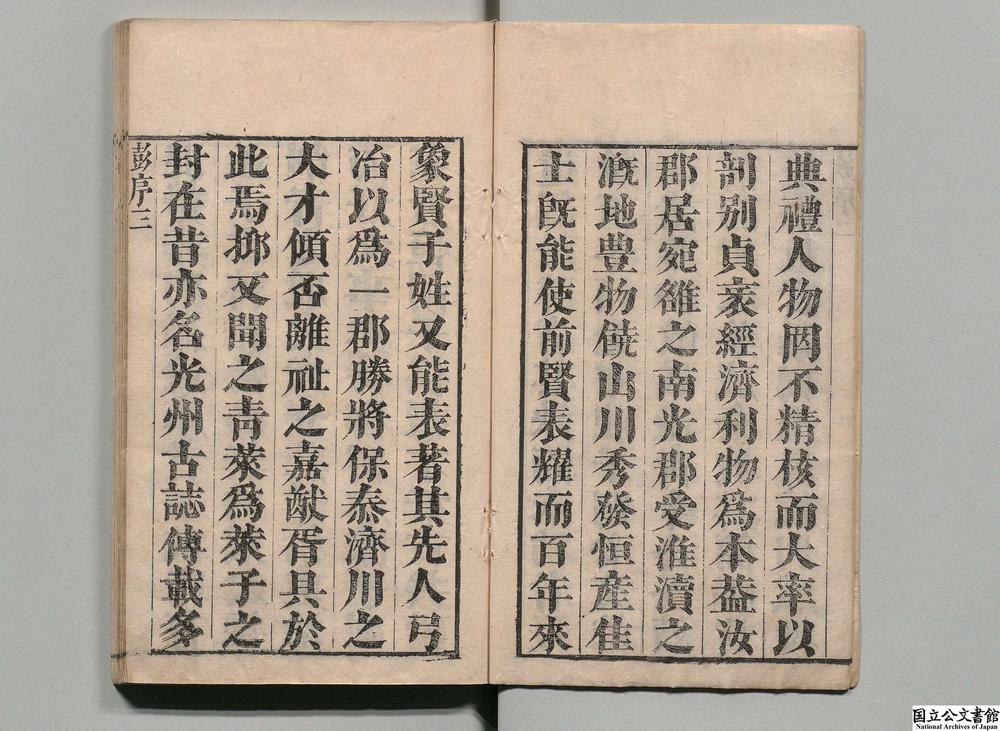 典禮人物罔不精核而大率以
剖别貞衺經濟利物爲本葢汝
郡居宛雒之南光郡受淮瀆之
漑地豊物饒山川秀發恒産佳
士旣能使前賢表耀而百年來
象賢子姓又能表著其先人弓
冶以爲一郡勝將保泰濟川之
大才傾否離祉之嘉猷胥具於
此焉抑又聞之青萊爲萊子之
封在昔亦名光州古誌傳載多
彭序三
国立公文書館
National Archives of Japan